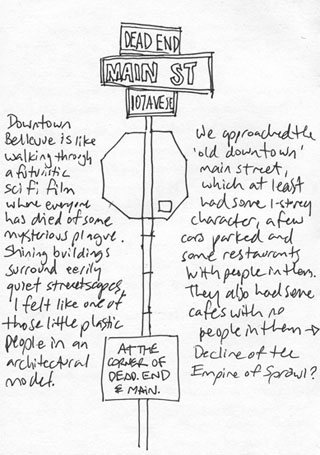 DEAD END
MAIN ST
107 AVE SE
Downtown
Bellevue is like
walking through
a futuristic
sci fi film
where everyone
has died of some
mysterious plague.
Shining buildings
surround eerily
quiet streetscapes.
I felt like one of
those little plastic
people in an
architectural
model.
We approached the
'old downtown'
main street,
which at least
had some 1-storey
character, a few
cars parked and
some restaurants
with people in them.
They also had some
cafés with no
people in them →
Decline of the
Empire of Sprawl?
AT THE
CORNER OF
DEAD.END
& MAIN.